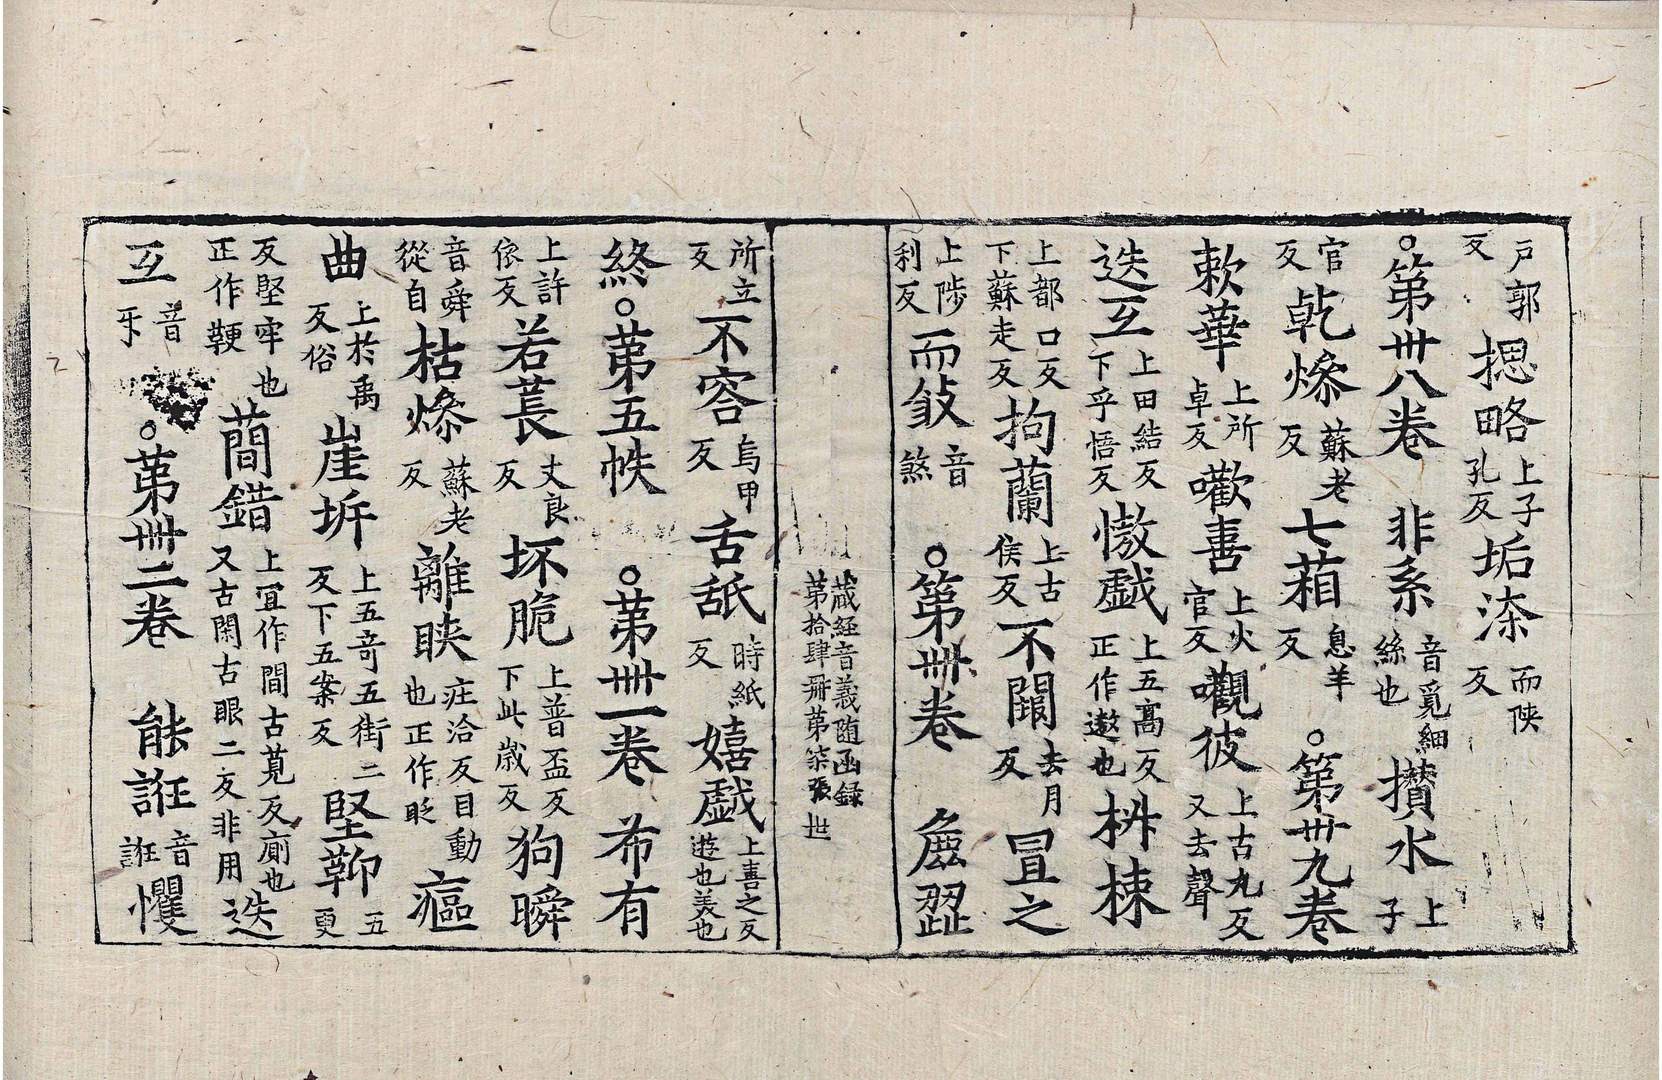 戶郭反摁略上子孔反垢漆而陝反
○第卅八卷 非系音覓細絲也攢水上子
官反乾燥蘇老反七葙息羊反○第卅九卷
欶華上所卓反歡喜上火官反觀彼上古丸反又去聲
迭互上田結反下乎悟反慠戲上五高反正作遨也枡棟
上都口反下蘇走反拘蘭上古侯反不闋去月反冒之
上陟利反而㪇音煞○第卌卷 麁澀
藏経音義随函録
第拾肆冊第柒張 世
所立反不容烏甲反舌舐時紙反嬉戲上喜之反遊也美也
終○第五帙 ○第卌一卷 布有
上許依反若萇丈良反坏脆上普盃反下此歲反狗瞬
音舜從自枯燥蘇老反離䀹庄洽反目動也正作眨 䫜
曲上於禹反俗崖坼上五奇五街二反下五案反堅䩕五更
反堅牢也正作鞕蕳錯上宜作間古莧反廁也又古閑古眼二反非用迭
互音乐 ○第卌二卷 能誑音誑懼